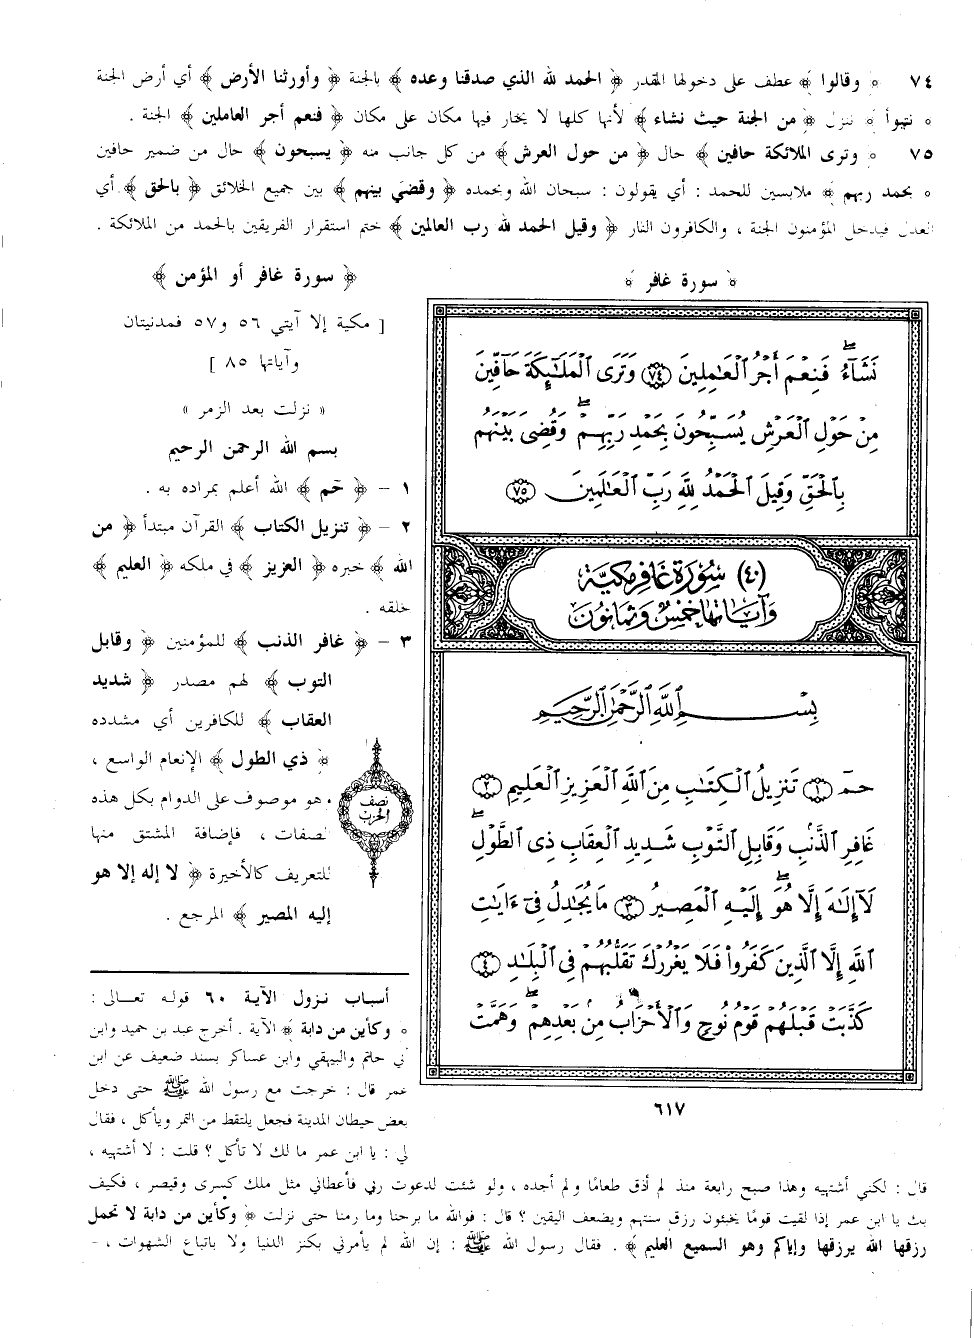 ٧٤ ﴿ وقالوا ﴾ عطف على دخولها المقدر ﴿ الحمد لله الذي صدقنا وعده ﴾ بالجنة ﴿ وأورثنا الأرض ﴾ أي أرض الجنة
﴿ نتبوأ ﴾ ننزل ﴿ من الجنة حيث نشاء ﴾ لأنها كلها لا يختار فيها مكان على مكان ﴿ فنعم أجر العاملين ﴾ الجنة .
٧٥ ﴿ وترى الملائكة حافين ﴾ حال ﴿ من حول العرش ﴾ من كل جانب منه ﴿ يسبحون ﴾ حال من ضمير حافين
﴿ بحمد ربهم ﴾ ملابسين للحمد : أي يقولون : سبحان الله وبحمده ﴿ وقضي بينهم ﴾ بين جميع الخلائق ﴿ بالحق ﴾ أي
العدل فيدخل المؤمنون الجنة ، والكافرون النار ﴿ وقيل الحمد لله رب العالمين ﴾ ختم استقرار الفريقين بالحمد من الملائكة .
﴿ سورة غافر ﴾
نَشَآءُ فَنِعْمَ أَجْرُ ٱلْعَٰمِلِينَ ﴿٧٤﴾ وَتَرَى ٱلْمَلَٰٓئِكَةَ حَآفِّينَ
مِنْ حَوْلِ ٱلْعَرْشِ يُسَبِّحُونَ بِحَمْدِ رَبِّهِمْ وَقُضِىَ بَيْنَهُم
بِٱلْحَقِّ وَقِيلَ ٱلْحَمْدُ لِلَّهِ رَبِّ ٱلْعَٰلَمِينَ ﴿٧٥﴾
(٤٠) سُورَة غَافِر مكيَّة
وَآيَاتُهَا خَمْسٌ وَثَمَانُون
بِسْمِ ٱللَّهِ ٱلرَّحْمَٰنِ ٱلرَّحِيمِ
حمٓ ﴿١﴾ تَنزِيلُ ٱلْكِتَٰبِ مِنَ ٱللَّهِ ٱلْعَزِيزِ ٱلْعَلِيمِ ﴿٢﴾
غَافِرِ ٱلذَّنۢبِ وَقَابِلِ ٱلتَّوْبِ شَدِيدِ ٱلْعِقَابِ ذِى ٱلطَّوْلِ
لَآ إِلَٰهَ إِلَّا هُوَ إِلَيْهِ ٱلْمَصِيرُ ﴿٣﴾ مَا يُجَٰدِلُ فِىٓ ءَايَٰتِ
ٱللَّهِ إِلَّا ٱلَّذِينَ كَفَرُوا۟ فَلَا يَغْرُرْكَ تَقَلُّبُهُمْ فِى ٱلْبِلَٰدِ ﴿٤﴾
كَذَّبَتْ قَبْلَهُمْ قَوْمُ نُوحٍ وَٱلْأَحْزَابُ مِنۢ بَعْدِهِمْ وَهَمَّتْ
٦١٧
﴿ سورة غافر أو المؤمن ﴾
[ مكية إلا آيتي ٥٦ و٥٧ فمدنيتان
وآياتها ٨٥ ]
« نزلت بعد الزمر »
بسم الله الرحمن الرحيم
١ – ﴿ حم ﴾ الله أعلم بمراده به .
٢ – ﴿ تنزيل الكتاب ﴾ القرآن مبتدأ ﴿ من
الله ﴾ خبره ﴿ العزيز ﴾ في ملكه ﴿ العليم ﴾
خلقه .
٣ – ﴿ غافر الذنب ﴾ للمؤمنين ﴿ وقابل
التوب ﴾ لهم مصدر ﴿ شديد
العقاب ﴾ للكافرين أي مشدده
﴿ ذي الطول ﴾ الإنعام الواسع ،
وهو موصوف على الدوام بكل هذه
الصفات ، فإضافة المشتق منها
للتعريف كالأخيرة ﴿ لا إله إلا هو
إليه المصير ﴾ المرجع .
نصف
الحزب
أسباب نزول الآية ٦٠ قوله تعالى :
﴿ وكأين من دابة ﴾ الآية . أخرج عبد بن حميد وابن
أبي حاتم والبيهقي وابن عساكر بسند ضعيف عن ابن
عمر قال : خرجت مع رسول الله ﷺ حتى دخل
بعض حيطان المدينة فجعل يلتقط من التمر ويأكل ، فقال
لي : يا ابن عمر ما لك لا تأكل ؟ قلت : لا أشتهيه ،
قال : لكني أشتهيه وهذا صبح رابعة منذ لم أذق طعامًا ولم أجده ، ولو شئت لدعوت ربي فأعطاني مثل ملك كسرى وقيصر ، فكيف
بك يا ابن عمر إذا لقيت قومًا يخبئون رزق سنتهم ويضعف اليقين ؟ قال : فوالله ما برحنا وما رمنا حتى نزلت ﴿ وكأين من دابة لا تحمل
رزقها الله يرزقها وإياكم وهو السميع العليم ﴾ . فقال رسول الله ﷺ : إن الله لم يأمرني بكنز الدنيا ولا باتباع الشهوات ، –